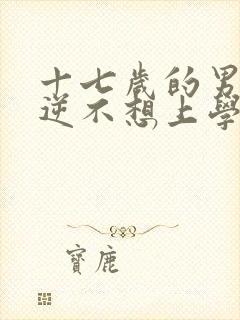 十七歲的男
逆不想上學
寶鹿